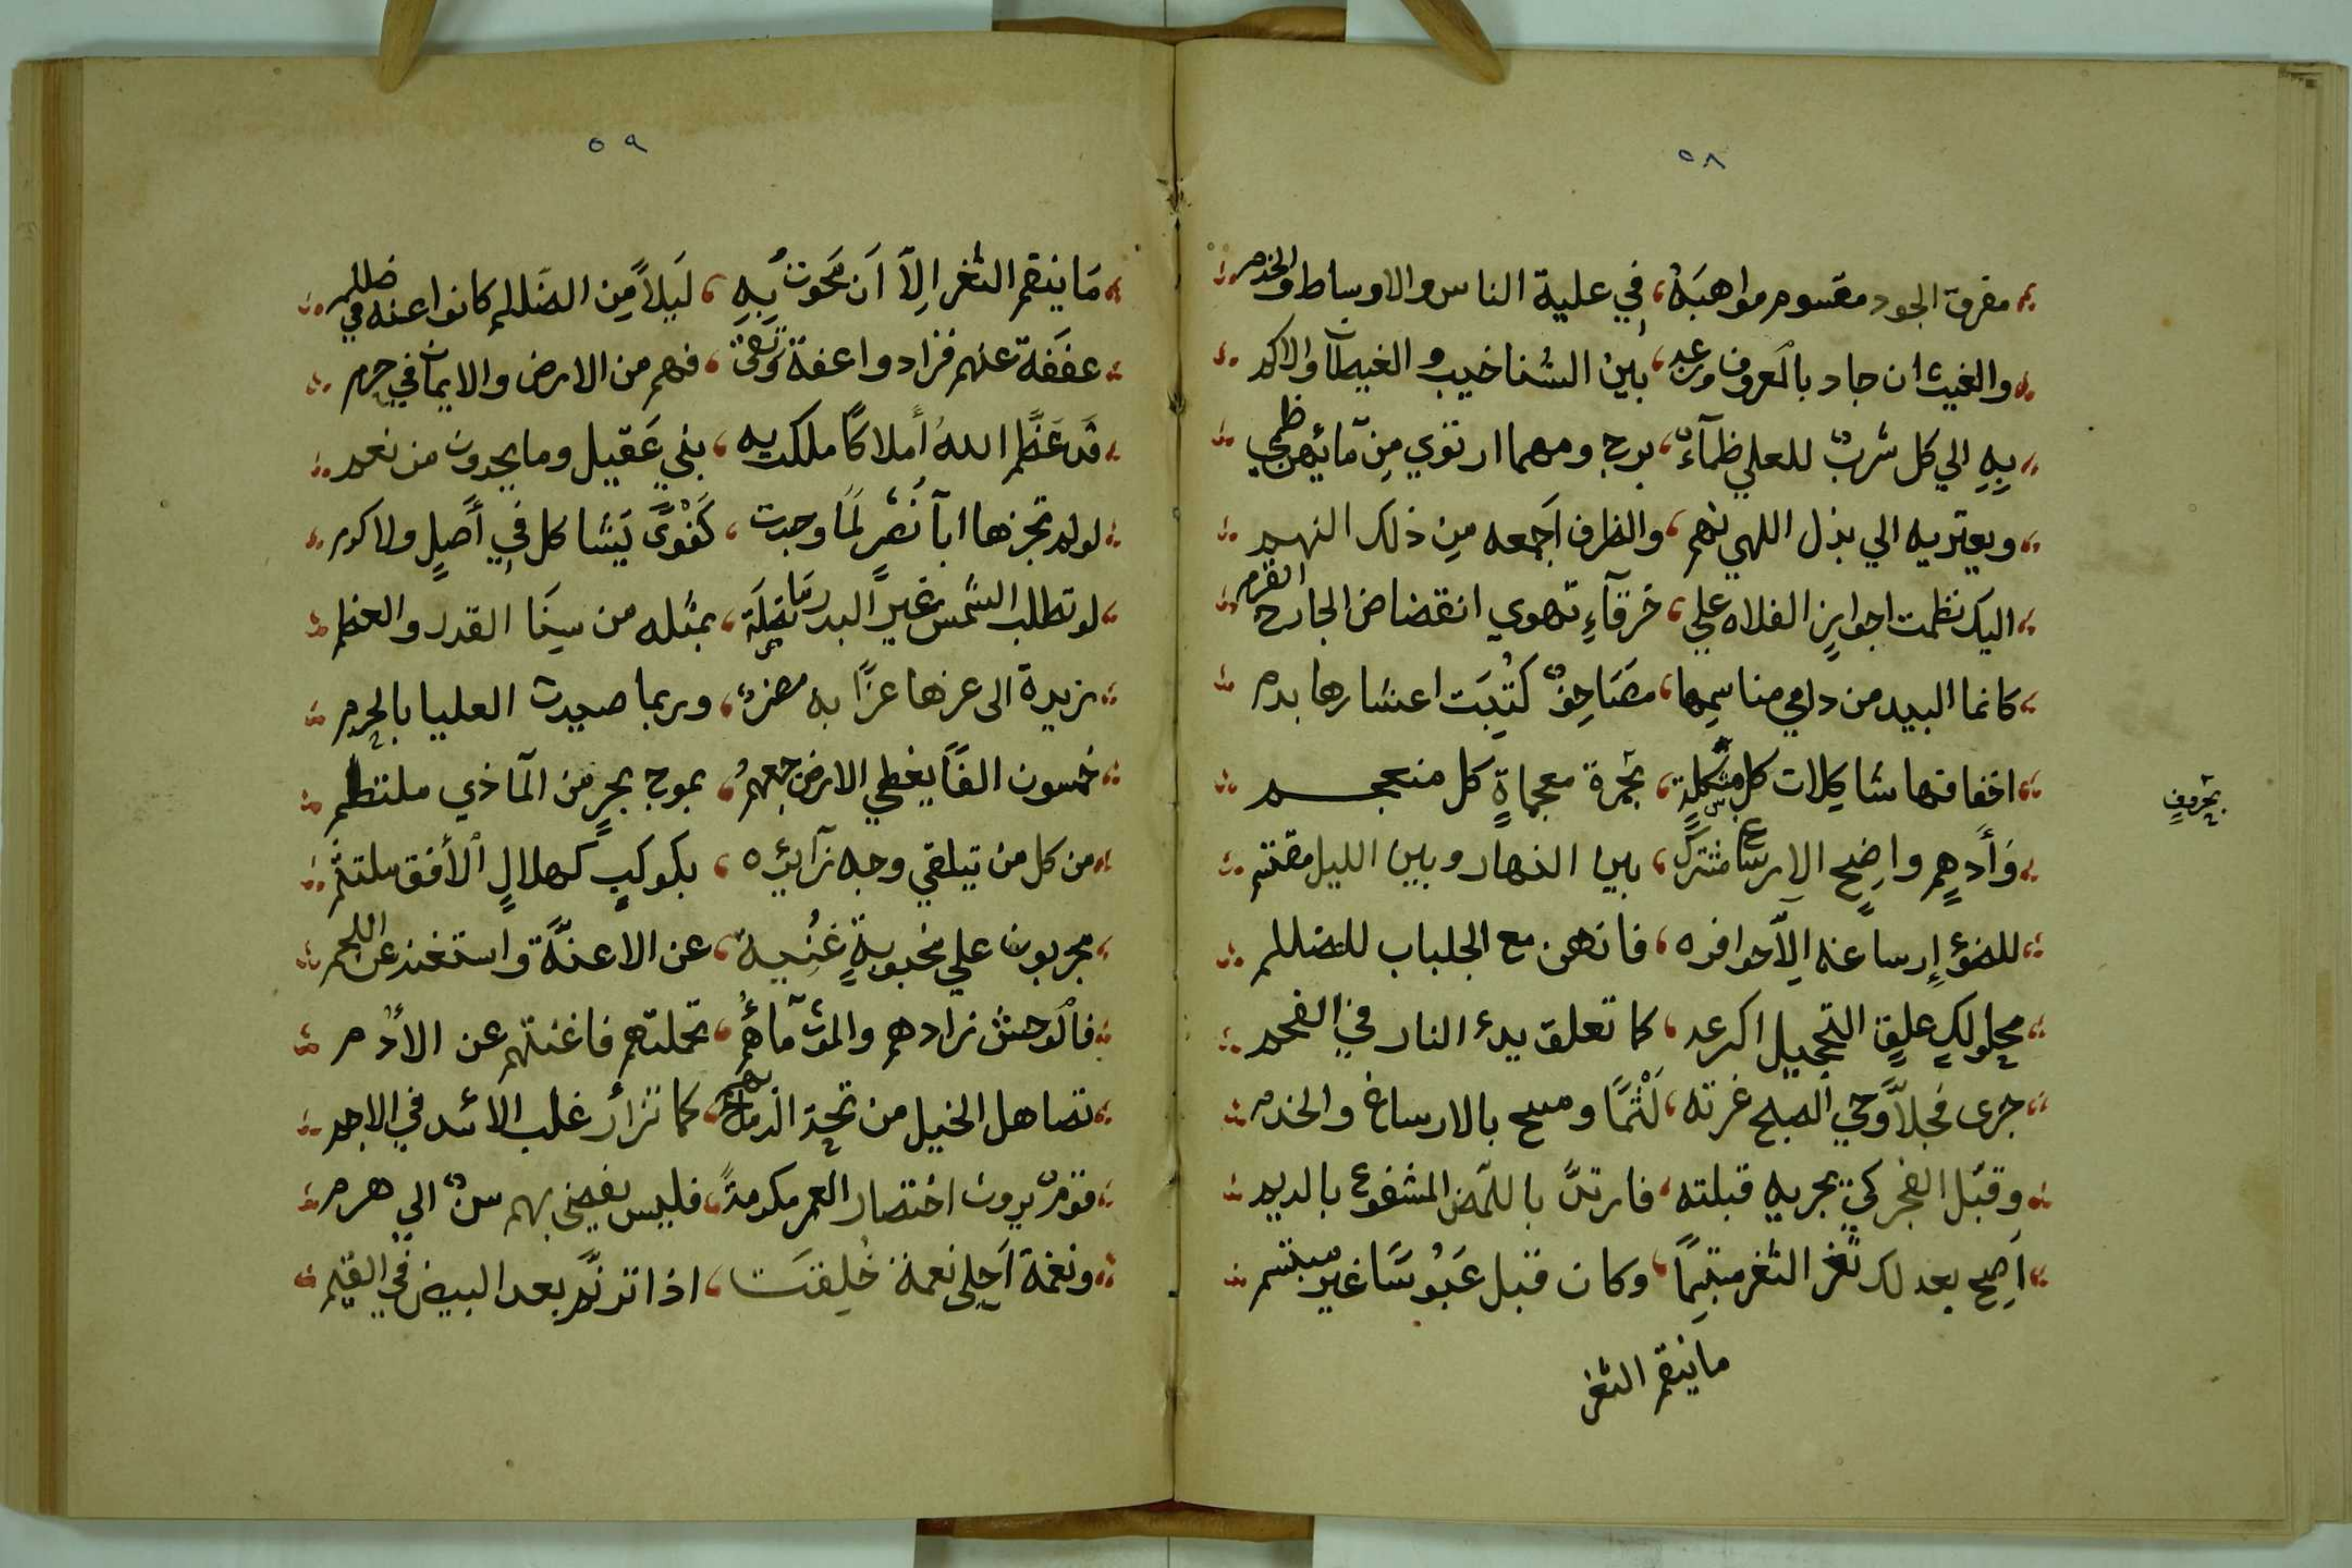 ٥٨
مفرق الجود مقسوم مواهبَهُ، في علية الناس والاوساط والخدم
والغيث ان جاد بالمعروف وزعه، بين الشناخيب والغيطان والاكم
بِهِ الي كل شربٍ للعلي ظمآءٌ، برح ومهما ارتوي مِن مآئهن ظمي
ويعتريه الي بذل اللهي نهم، والظرف اَجمعه مِن ذلك النهم
اليك نظمت اجوايز الفلاه علي، خرقآءِ تهوي انقضاض الجارح القرم
كانما البيد من دامي مناسمِها، مصَاحِفٌ كُتِبَت اعشارها بدم
اخفافها شاكِلات كل مشكِلةٍ، بحمرة معجماةٍ كل منعجم
بحروفٍ
وَأَدهِمٍ واضِح الارساغ مشترك، بين النهار وبين الليل مقتتم
للضؤ إِرساغه اِلاّ حوافره، فانهن مع الجلباب للظلم
محلولكٍ علِقٍ التحجيل اكرعه، كما تعلق بدء النار في الفحم
جرى فجلاّ وحي الصبح غرته، لَثمًا ومسح بالارساغ والخدم
وقبّل الفجر كي يجريه قبلته، فارتدّ باللمض المشفوع بالديم
اَصبح بعدلك ثغر الثغر مبتسِمًا، وكان قبل عَبُوسًا غير مبتسم
ماينقم الثغر
٥٩
مَا ينقم الثغر اِلاّ اَن نَحوتُ بِهِ، لَيلاً مِن الظلم كانوا عنه في ظلم
عففَة عنهم فزادوا عفة وَتقى، فهم من الارض والايمان في حرم
قد عَظَّم اللهُ أَملاكًا ملكت به، بني عَقيل وما يحوون من نعم
لو لم تحزها ابا نَصْرٍ لمَا وجدت، كَفْوًى يَشاكل في أَصلٍ ولا كرم
لو تطلب الشمس غيرَ البدر مَا نَضِلَة، بمثله من سِنَا القدر والعظم
يزيدة الى عزها عزّا به مضرٌ، وربما صيدت العليا بالحرم
خمسون الفًا يغطي الارض جمعهمُ، بموج بحرٍ مِن الماذي ملتطم
من كل من يتلقي وجه زآئِره، بكوكبٍ كهلالٍ الأفق ملتثم
مجربون علي مجنوبةٍ غنيت، عن الاعنَّة واستغنت عن اللجم
فالوحش زادهم والموت مآؤُهمُ، تحملتهم فاغنتهم عن الأُدم
تصاهل الخيل من تحت الرماح بهم، كما تزأر غلب الاُسْد في الاجم
قومٌ يرون اختصار العمر مكرمةً، فليس يفضي بهم سنٌ الي هرم
ونغمة اَحلى نعمة خُلِقَت، اذا ترنَّم بعد البيض في القمم